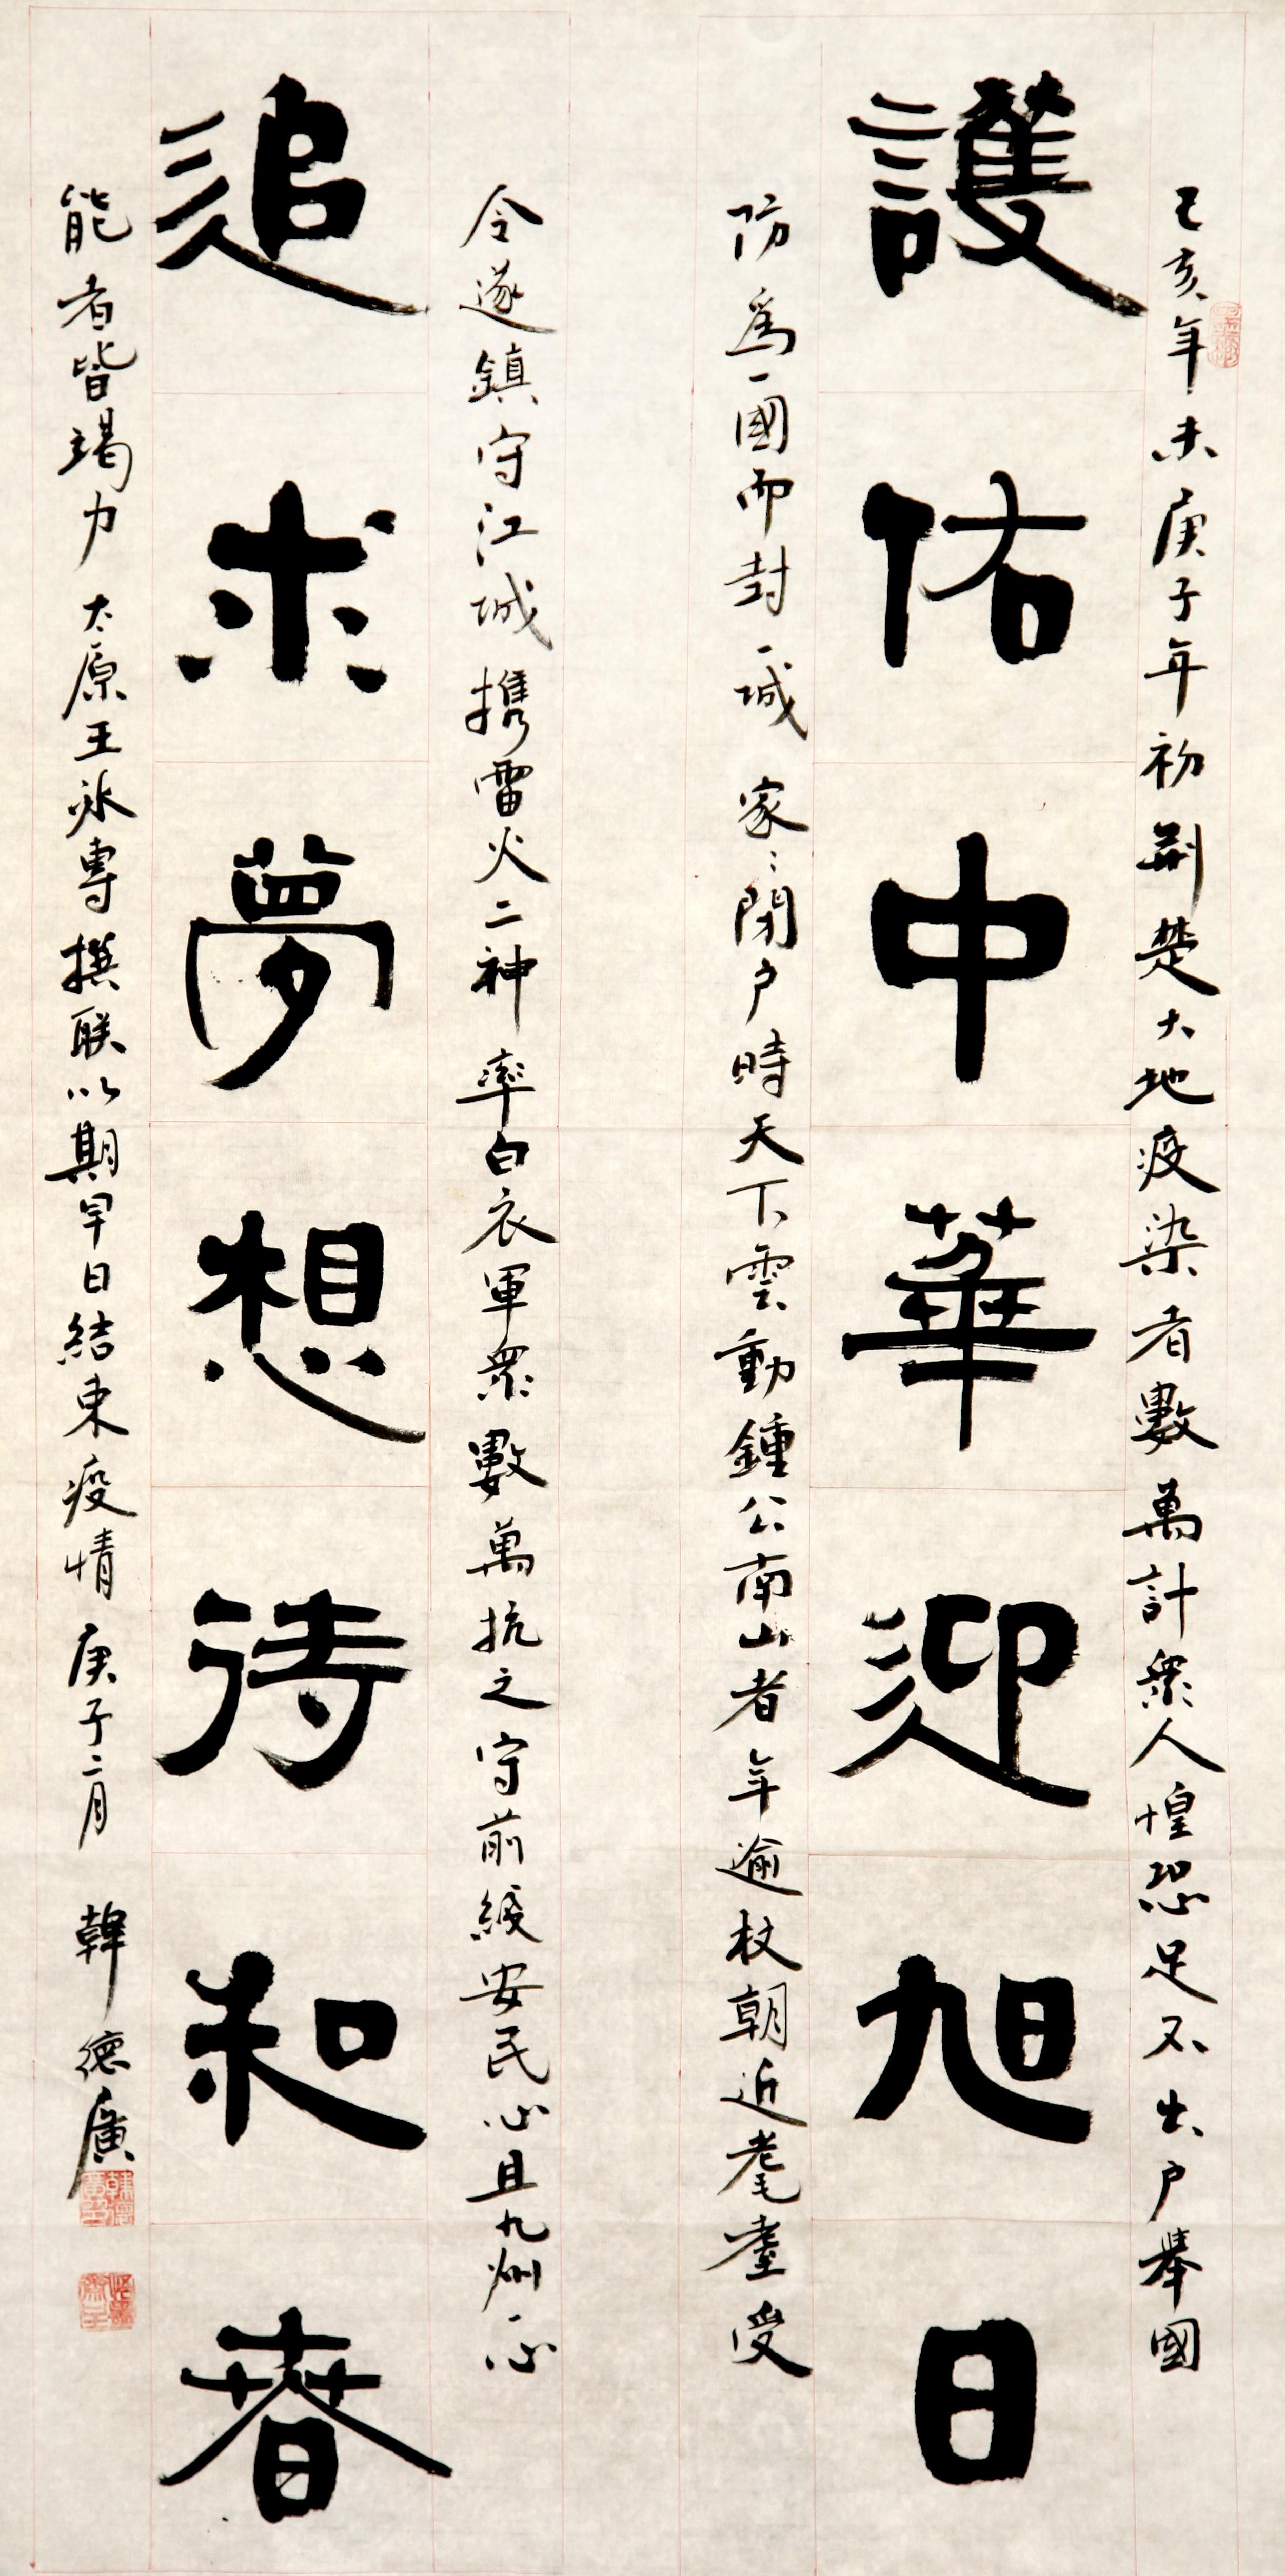 己亥年末庚子年初荆楚大地疫染者數萬計衆人惶恐足不出户舉國
護佑中華迎旭日
防爲一國而封一城家々閉户時天下雲動鍾公南山者年逾杖朝近耄耋受
令遂鎮守江城携雷火二神率白衣軍衆數萬抗之守前綫安民心且九州一心
追求夢想待和春
能者皆竭力太原王冰專撰联以期早日結束疫情庚子二月韓德廣